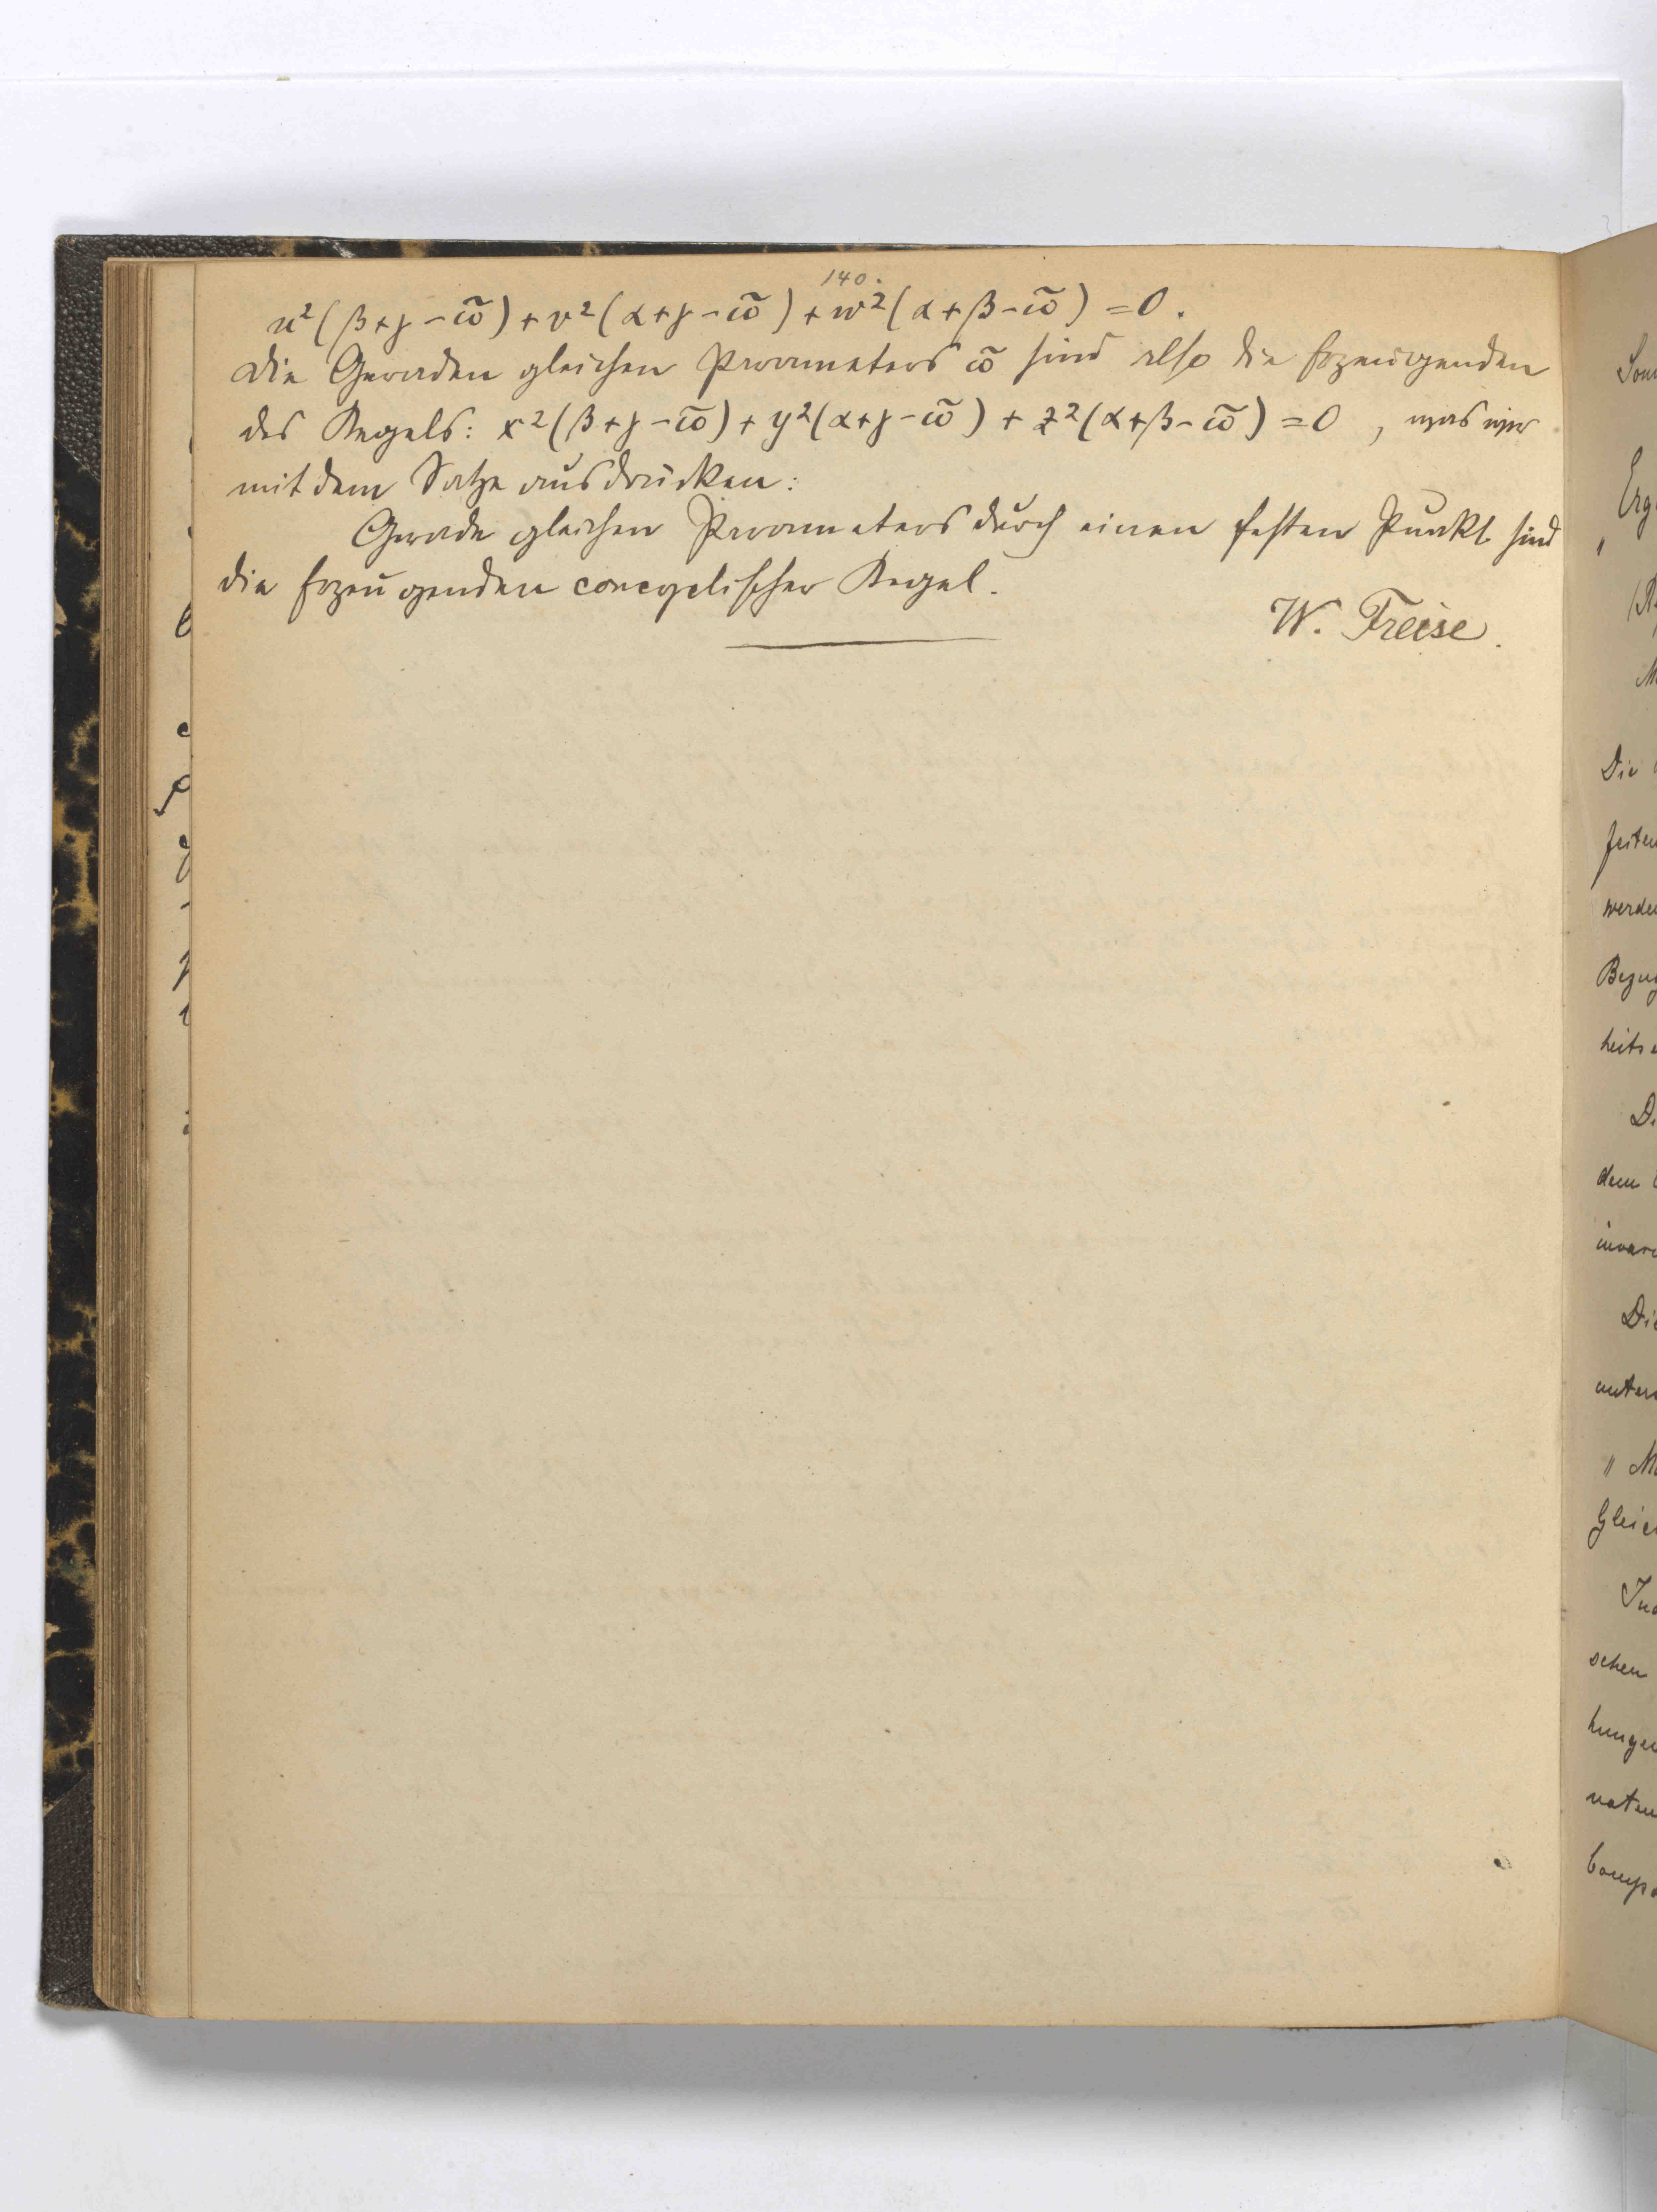 140.
u²(β+γ-ω̃)+v²(α+γ-ω̃)+w²(α+β-ω̃)=0.
Die Geraden gleichen Parameters ω̃ sind also die Erzeugenden
des Kegels: x²(β+γ-ω̃)+y²(α+γ-ω̃)+z²(α+β-ω̃)=0, was wir
mit dem Satze ausdrücken:
Gerade gleichen Parameters durch einen festen Punkt sind
die Erzeugenden concyclischer Kegel.
W. Freise.
Die
werde
dem